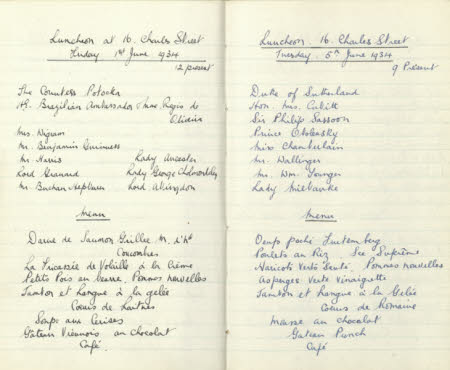 Luncheon at 16. Charles Street
Friday 1st June 1934
12 present
The Countess Potocka
H.E. Brazilian Ambassador & Mme. Regis de
Oliveira
Mrs. Wigram
Mr. Benjamin Guinness
Mr. Harris Lady Ancaster
Lord Granard Lady George Cholmondeley
Mr. Buchan Hepburn Lord Abingdon
Menu
Darne de Saumon Grillée M. d'H
Concombres
La Fricassée de Volaille à la Crème
Petits Pois au Beurre. Pommes nouvelles
Jambon et Langue à la gelée
Coeurs de Laitues
Soupe aux Cerises
Gateau Viennois au Chocolat
Café
Luncheon. 16. Charles Street
Tuesday. 5th June 1934
9 Present
Duke of Sutherland
Hon. Mrs. Cubitt
Sir Philip Sassoon
Prince Obolensky
Miss Chamberlain
Mr. Wallinger
Mr. Wm. Younger
Lady Milbanke
Menu
Oeufs poché
Poulets au Riz Sce Suprême
Haricots Verts Sauté. Pommes nouvelles
Asperges Verte Vinaigrette
Jambon et Langue à la Gelée
Coeurs de Romaine
Mousse au chocolat
Gateau Punch
Café